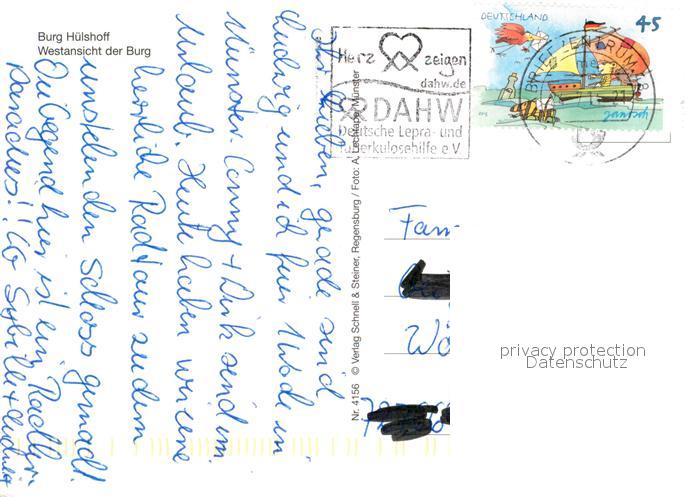 Burg Hülshoff
Westansicht der Burg
Herz zeigen
dahw.de
DAHW
Deutsche Lepra- und
Tuberkulosehilfe e V
DEUTSCHLAND
45
BRIEFZENTRUM
Janosch
Ihr Lieben, gerade sind
Ludwig und ich für 1 Woche in
Münster. Conny + Dirk sind im
Urlaub. Heute haben wir eine
herrliche Radtour zu dem
umstehenden Schloss gemacht.
Die Gegend hier ist ein Radler
paradies!! LG Sybille + Ludwig
Nr. 4156 © Verlag Schnell & Steiner, Regensburg / Foto: A. Lechtape, Münster
Fam
Wö
privacy protection
Datenschutz